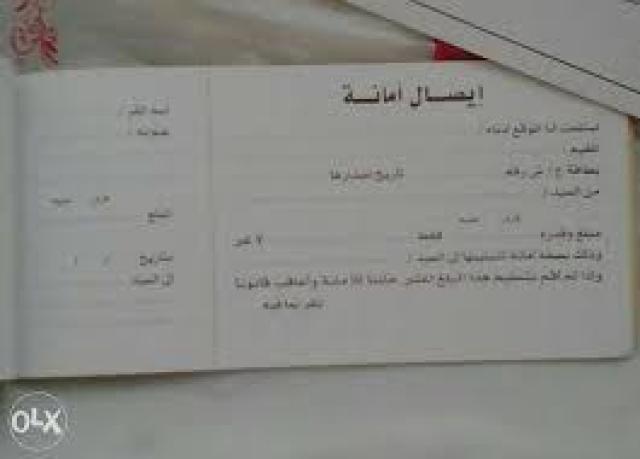 إيصال أمانة
استلمت أنا الموقع أدناه /
المقيم /
بطاقة ع / ش رقم تاريخ إصدارها
من السيد /
مبلغ وقدره فقط لا غير
وذلك بصفة أمانة لتسليمها إلى السيد /
وإذا لم أقم بتسليم هذا المبلغ أعتبر خائنا للأمانة وأعاقب قانونا
اسم المقر /
عنوانه /
المبلغ
بتاريخ / /
إلى السيد
OLX